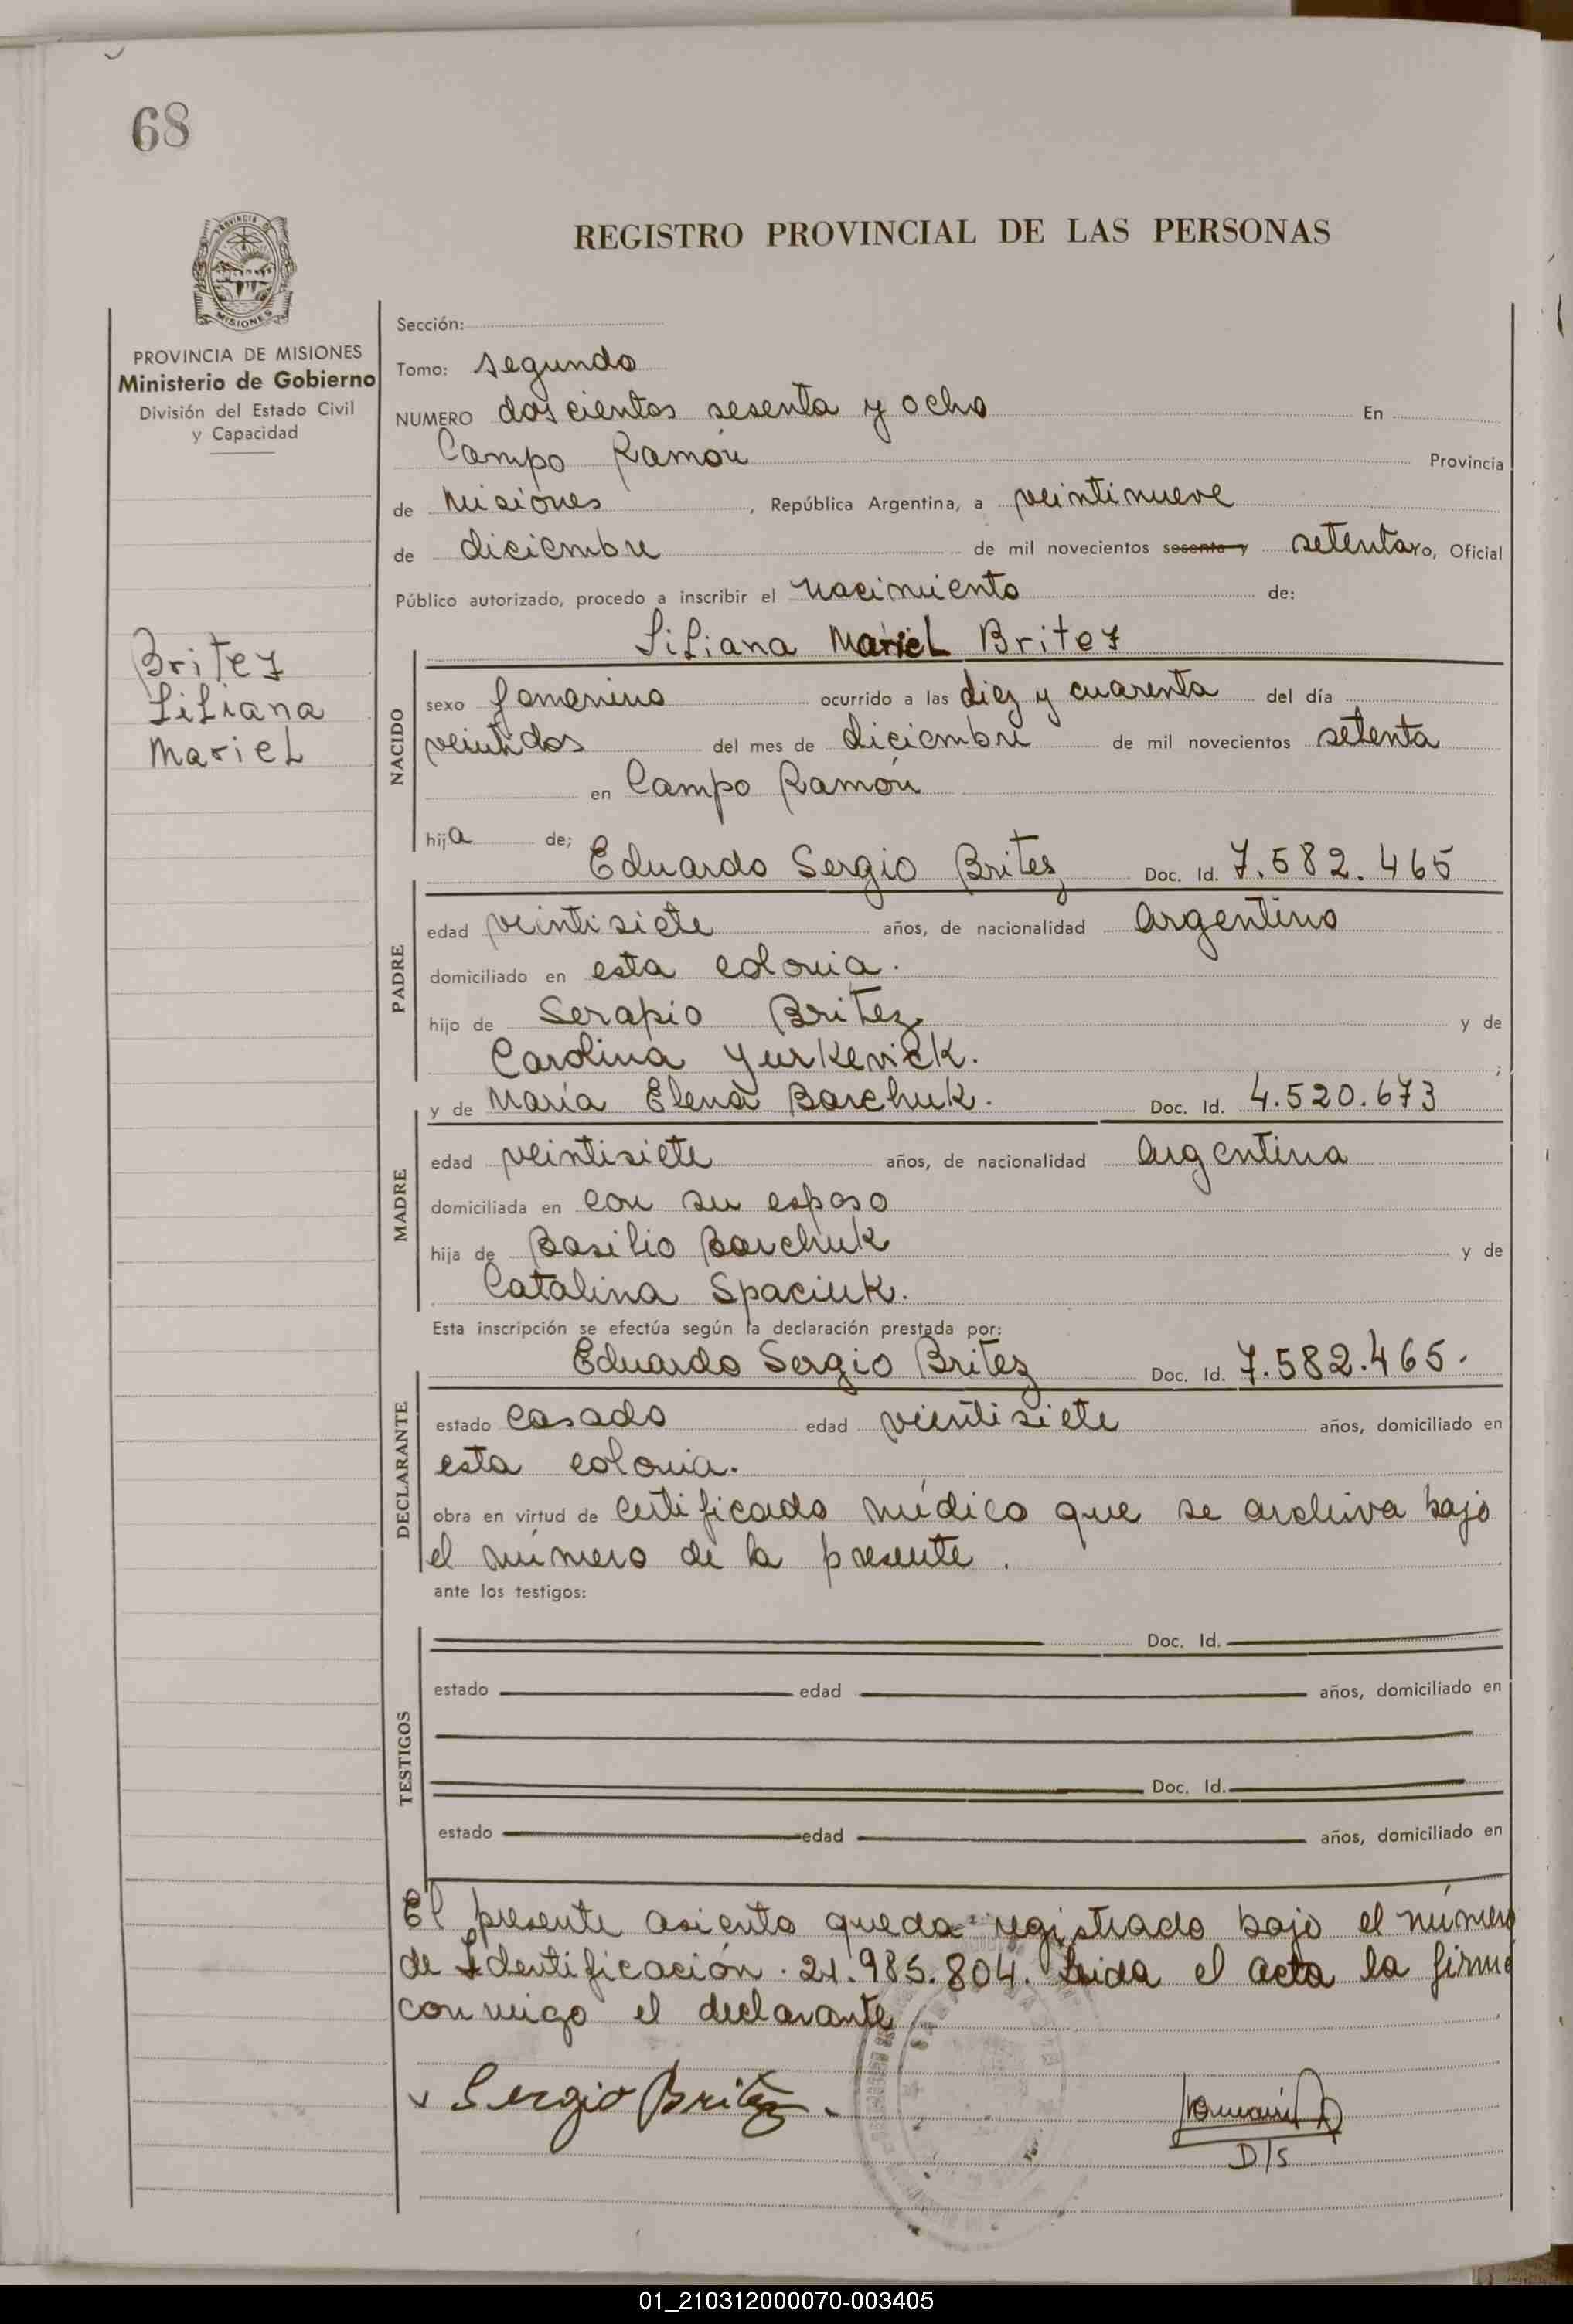 68
PROVINCIA DE MISIONES
Ministerio de Gobierno
División del Estado Civil
y Capacidad
Britez
Liliana
Mariel
REGISTRO PROVINCIAL DE LAS PERSONAS
Sección:
Tomo: segundo
NUMERO doscientos sesenta y ocho En
Campo Ramón Provincia
de Misiones, República Argentina, a veintinueve
de diciembre de mil novecientos sesenta y setenta yo, Oficial
Público autorizado, procedo a inscribir el nacimiento de:
Liliana Mariel Britez
NACIDO
sexo femenino ocurrido a las diez y cuarenta del día
veintidos del mes de diciembre de mil novecientos setenta
en Campo Ramón
hija de; Eduardo Sergio Britez Doc. Id. 7.582.465
PADRE
edad veintisiete años, de nacionalidad argentino
domiciliado en esta colonia.
hijo de Serapio Britez y de
Carolina Yurkevick. ;
y de María Elena Barchuk. Doc. Id. 4.520.673
MADRE
edad veintisiete años, de nacionalidad argentina
domiciliada en con su esposo
hija de Basilio Barchuk y de
Catalina Spaciuk.
Esta inscripción se efectúa según la declaración prestada por:
Eduardo Sergio Britez Doc. Id. 7.582.465.
DECLARANTE
estado casado edad vientisiete años, domiciliado en
esta colonia.
obra en virtud de certificado médico que se archiva bajo
el número de la presente.
ante los testigos:
TESTIGOS
Doc. Id.
estado edad años, domiciliado en
Doc. Id.
estado edad años, domiciliado en
El presente asiento queda registrado bajo el número
de Identificación. 21.985.804. Leida el acta la firma
conmigo el declarante
Sergio Britez.
D/S
01_210312000070-003405